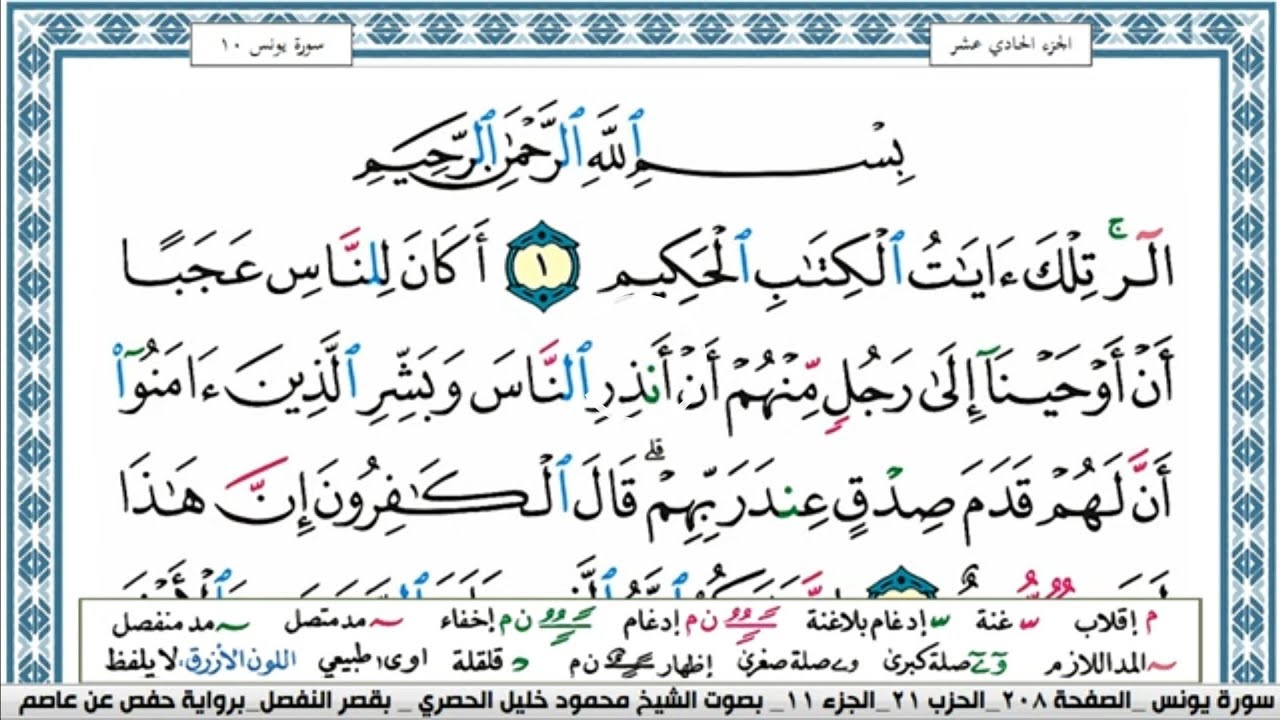 الجزء الحادي عشر
سورة يونس ١٠
بِسْمِ ٱللَّهِ ٱلرَّحْمَٰنِ ٱلرَّحِيمِ
الٓرۚ تِلْكَ ءَايَٰتُ ٱلْكِتَٰبِ ٱلْحَكِيمِ ١ أَكَانَ لِلنَّاسِ عَجَبًا
أَنْ أَوْحَيْنَآ إِلَىٰ رَجُلٍ مِّنْهُمْ أَنْ أَنذِرِ ٱلنَّاسَ وَبَشِّرِ ٱلَّذِينَ ءَامَنُوٓا۟
أَنَّ لَهُمْ قَدَمَ صِدْقٍ عِندَ رَبِّهِمْ ۗ قَالَ ٱلْكَٰفِرُونَ إِنَّ هَٰذَا
م إقلاب غنة إدغام بلاغنة ن م إدغام ن م إخفاء مد متصل مد منفصل
المد اللازم صلة كبرى و ے صلة صغرى إظهار ن م قلقلة اوى طبيعي اللون الأزرق، لا يلفظ
سورة يونس _الصفحة ٢٠٨_ الحزب ٢١_ الجزء ١١_ بصوت الشيخ محمود خليل الحصري _ بقصر النفصل_برواية حفص عن عاصم